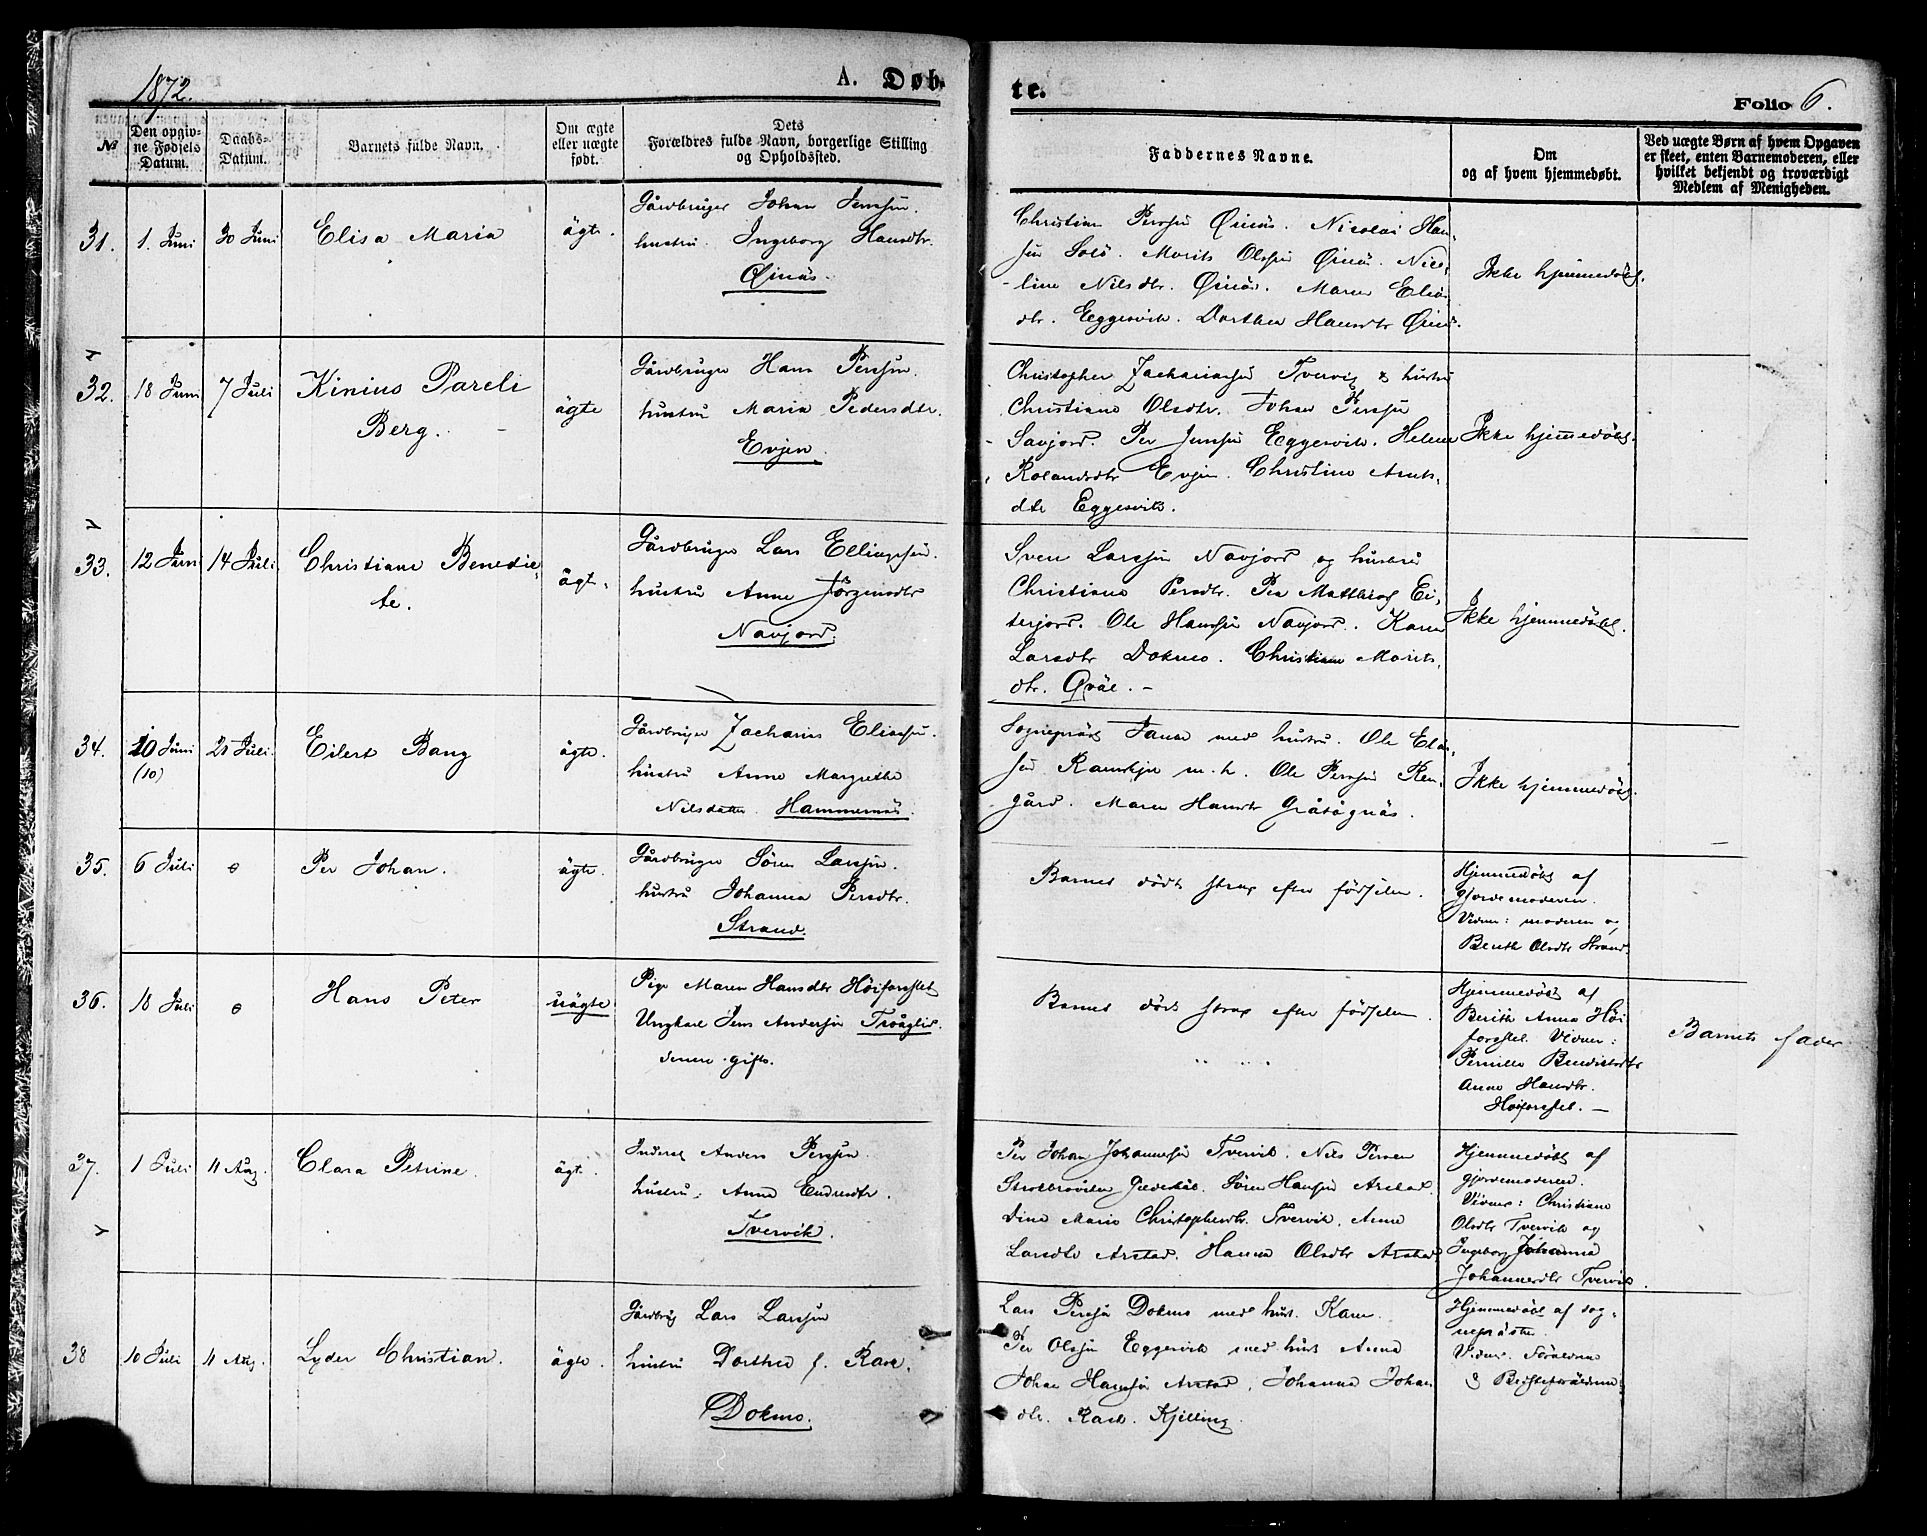 1872.
A. Døb-
te.
Folio 6.
№
Den opgiv-
ne Fødsels
Datum.
Daabs-
Datum.
Barnets fulde Navn.
Om ægte
eller uægte
født.
Dets
Forældres fulde Navn, borgerlige Stilling
og Opholdssted.
Faddernes Navne.
Om
og af hvem hjemmedøbt.
Ved uægte Børn af hvem Opgaven
er skeet, enten Barnemoderen, eller
hvilket bekjendt og troværdigt
Medlem af Menigheden.
31.
1. Juni
30 Juni
Elisa Maria
ägte.
Gårdbruger Johan Jensen.
hustru. Ingeborg Hansdtr.
Öinäs.
Christian Perssen Öinäs. Nicolai Han-
sen Solö. Morits Olssen Öinäs. Nico-
line Nilsdtr. Öinäs. Maren Elias
dtr. Eggesvik. Dorthea Hansdtr Öinäs.
Ikke hjemmedöbt.
32.
18 Juni
7 Juli
Kinius Pareli
Berg.
ägte
Gårdbruger Hans Perssen.
hustru Maria Pedersdtr.
Evjen.
Christopher Zachariassen Tvervig & hustru
Christiane Olsdtr. Johan Perssen
Savjord. Per Jenssen Eggesvik. Helene
Rolandsdtr Evjen. Christine Arnts-
dtr Eggesvik.
Ikke hjemmedöbt.
33.
12 Juni
14 Juli
Christiane Benedic-
te.
ägte.
Gårdbruger Lars Ellingsen.
hustru Anne Jörginsdtr
Navjord.
Sven Larssen Navjord og hustru
Christiane Persdtr. Per Matthias Ei-
terjord. Ole Hanssen Navjord. Karen
Larsdtr Dokmo. Christiane Morits-
dtr. Qväl. -
Ikke hjemmedöbt.
34.
10 Juni
(10)
21 Juli.
Eilert Bang
ägte.
Gårdbruger Zacharias Eliassen.
hustru Anne Margrethe
Nilsdatter. Hammernäs.
Sognepräst med hustru. Ole Elias-
sen Ramskjn m. h. Ole Perssen Ren-
gård. Maren Hansdtr Gråtågnäs.
Ikke hjemmedöbt.
35.
6 Juli
0
Per Johan.
ägte.
Gårdbruger Sören Larssen.
hustru Johanna Persdtr.
Strand.
Barnet döde strax efter födselen.
Hjemmedöbt af
gjordemoderen.
Vidner: moderen og
Berith Olsdtr Strand.
36.
18 Juli
0
Hans Peter
uägte
Pige Maren Hansdtr Höiforsslet
Ungkarl Jens Anderssen Tröåglid.
denne gift.
Barnet döde strax efter födselen.
" " "
Hjemmedöbt af
Berith Anna Höi
forsslet. Vidner:
Pernille Benedictsdtr
Anne Hansdtr.
Höiforsslet. -
Barnets fader
37.
1 Juli
11 Aug.
Clara Petrine.
ägt.
Inderst Anders Perssen
hustru. Anna Endresdtr.
Tvervik.
Per Johan Johannessen Tvervik. Nils Persen
Gildeskål. Sören Hanssen Arstad.
Dina Marie Christophersdtr. Tvervik. Anne
Larsdtr Arstad. Hanna Olsdtr Arstad.
Hjemmedöbt af
gjordemoderen.
Vidner: Christiane
Olsdtr Tvervik og
Ingeborg Johanna
Johannesdtr Tvervik.
38
10 Juli
11 Aug.
Lyder Christian.
ägte.
Gårdbrug Lars Larssen
hustru Dorthea f. Rask.
Dokmo.
Lars Perssen Dokmo med hust. Karen
Per Olssen Eggesvik med hust Anna
Johan Hanssen Arstad. Johanna Johan
dtr. Rask. Kjelling.
Hjemmedöbt af sog-
nepräten.
Vidner. Foräldrene
& Bedsteforäldrene